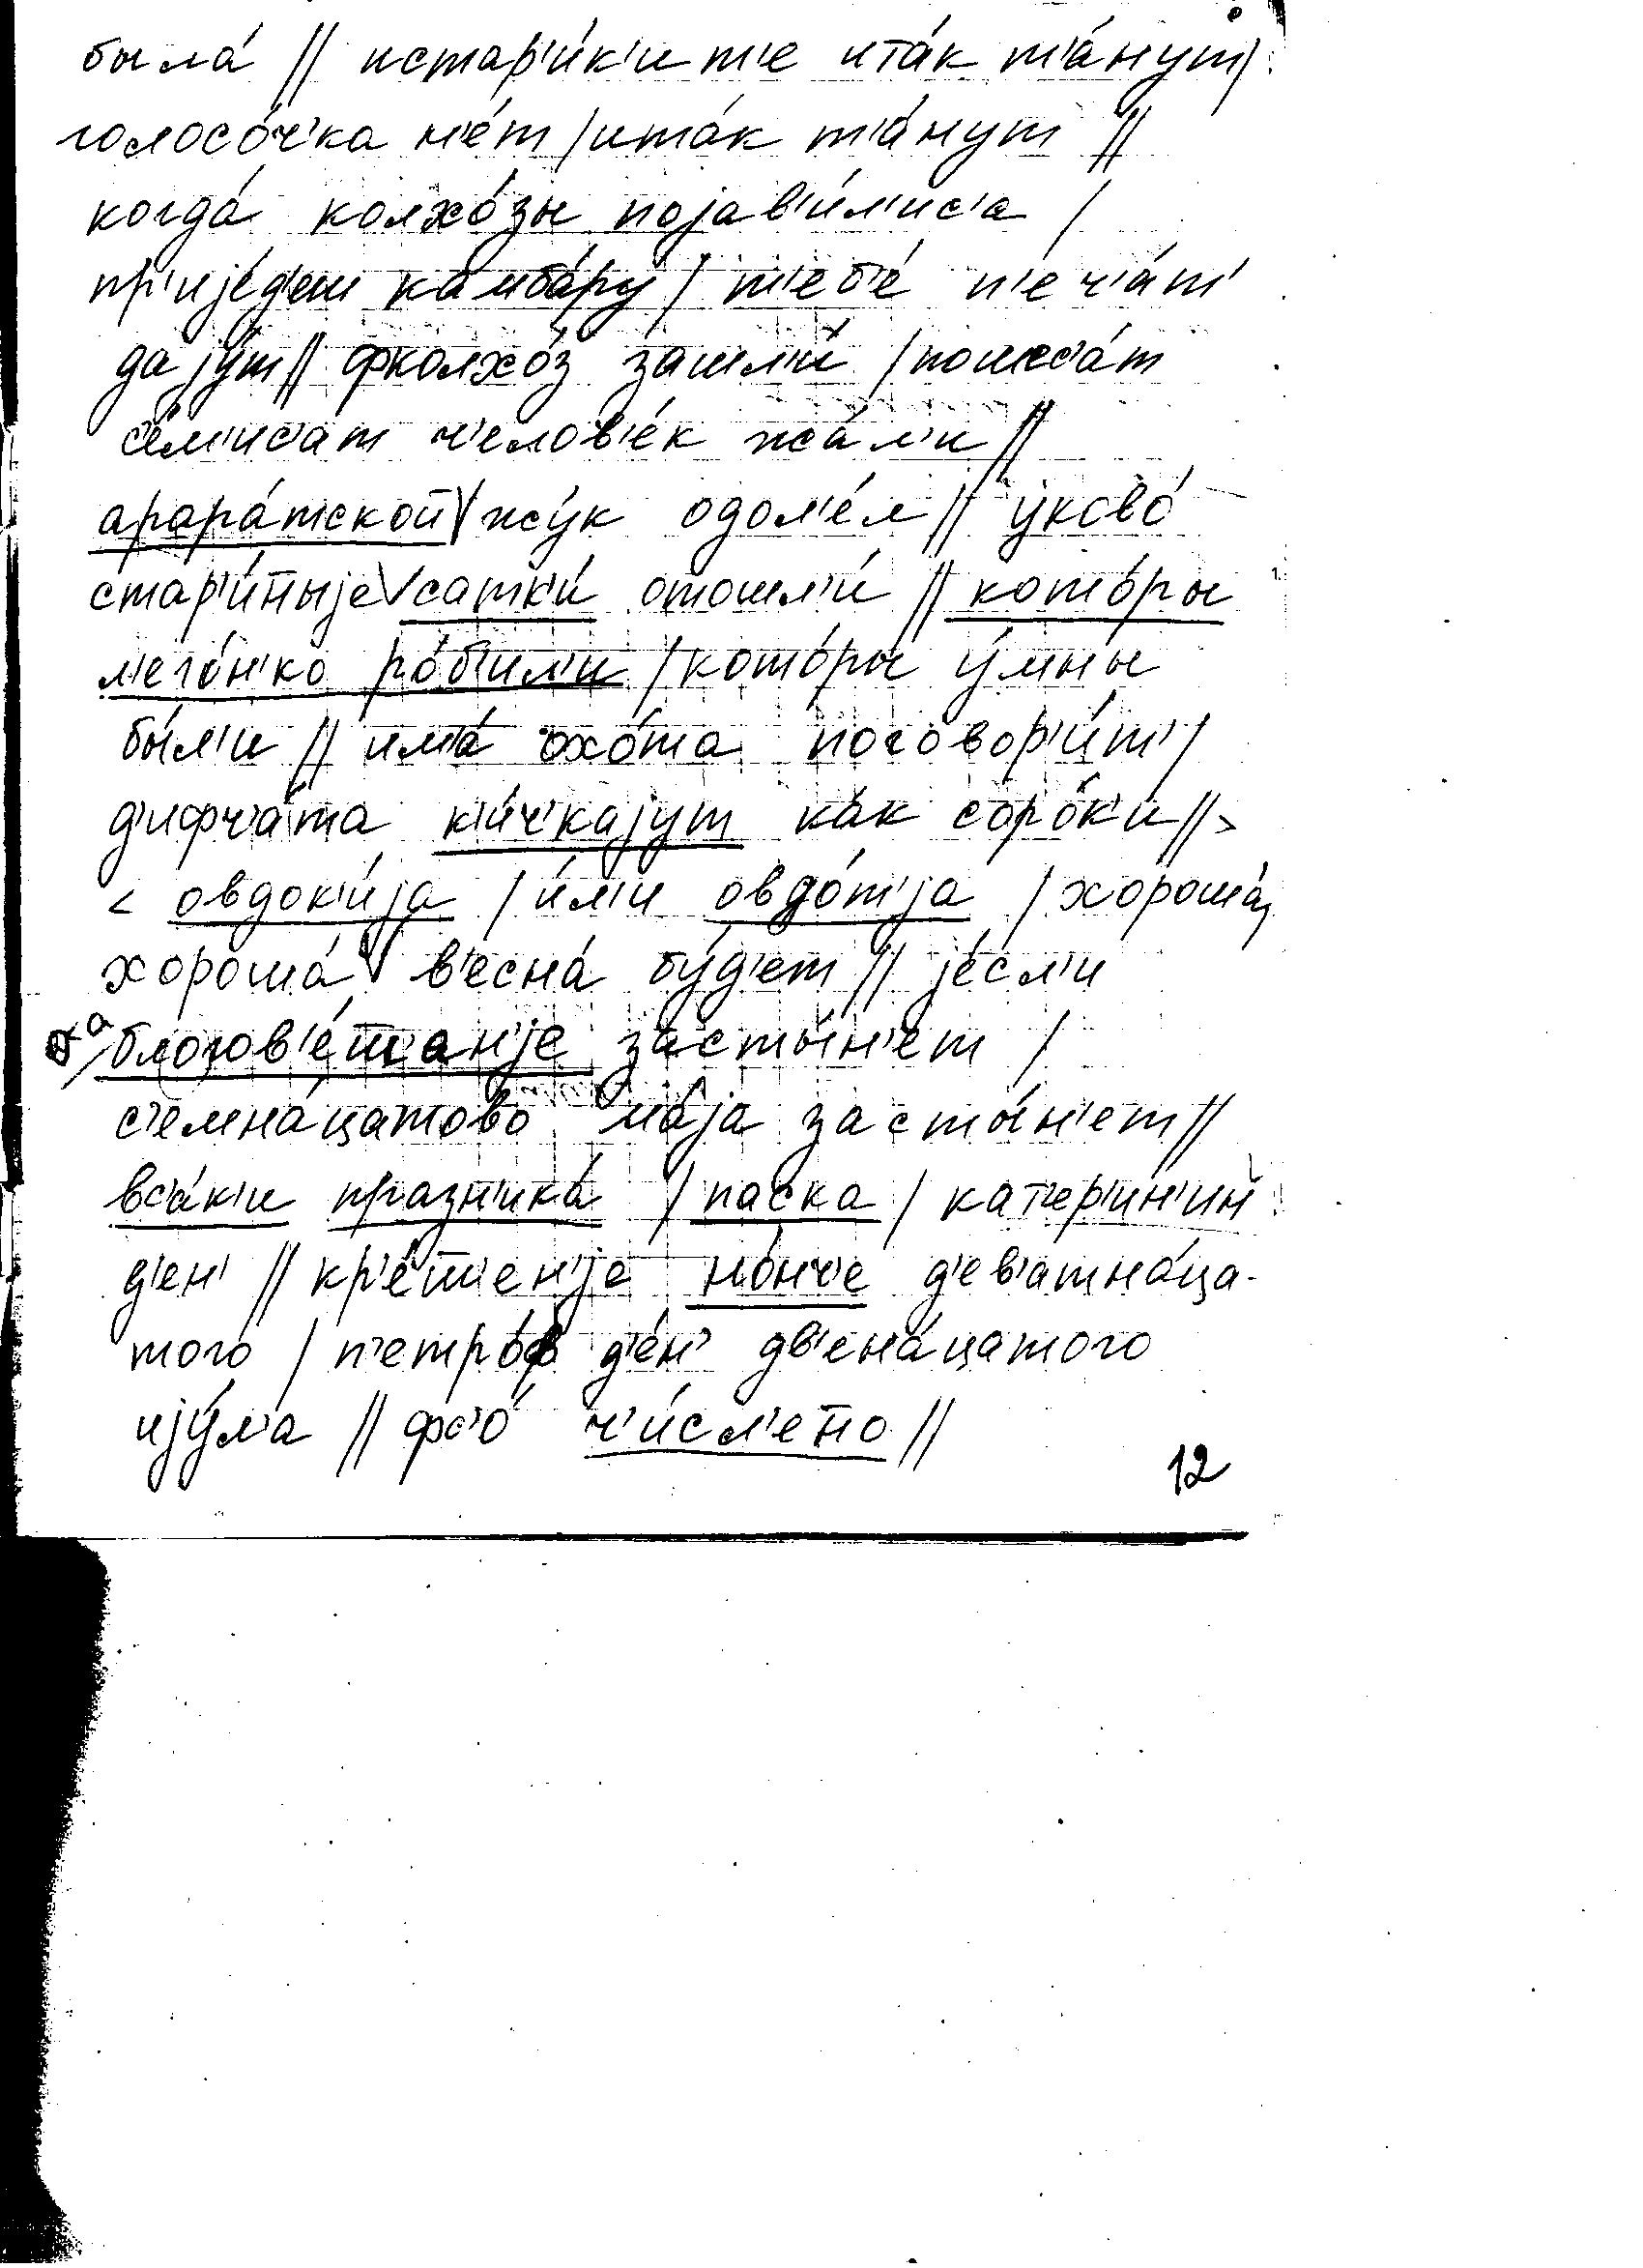 была́ // истар'и́к'и т'е ита́к т'а́нут /
голосо́ч'ка н'е́т / ита́к т'а́нут //
когда́ колхо́зы појав'и́л'ис'а /
пр'ије́д'еш камба́ру / т'еб'е́ п'еч'а́т'
дају́т // фколхо́з зашл'и́ / пошес'а́т
се́м'ис'ат ч'елов'е́к жа́л'и //
арара́тской жу́к одол'е́л // уково́
стар'и́н̄ыје сатк'и́ отошл'и́ // кото́ры
л'его́н'ко ро́б'ил'и / кото́ры у́мны
бы́л'и // им'а́ охо́та поговор'и́т' /
д'ифч'а́та к'и́ч'кајут как соро́к'и // >
< овдок'и́ја / и́л'и овдо́т'ја / хороша́,
хороша́ в'есна́ бу́д'ет // је́сл'и
а благов'е́ш̄ан'је засты́н'ет /
с'емна́цатово ма́ја засты́н'ет //
вс'а́к'и празн'ика́ / паска / кат'ер'и́н'ин
д'ен' // кр'еш̄'е́н'је но́нч'е д'ев'атна́ца-
того / п'етро́ф д'е́н' дв'ена́цатого
ију́л'а // фс'о́ ч'и́сл'ен̄о //
12